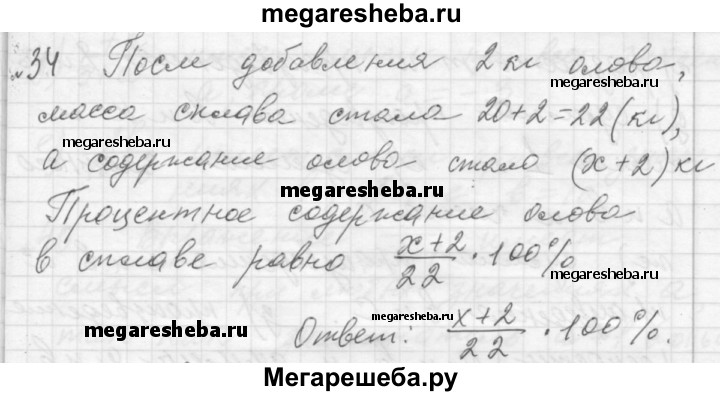 megaresheba.ru
№34 После добавления 2 кг олова,
megaresheba.ru
megaresheba.ru
масса сплава стала 20+2=22 (кг),
megaresheba.ru
а содержание олова стало (x+2) кг
megaresheba.ru
Процентное содержание олова
в сплаве равно \frac{x+2}{22} · 100%
megaresheba.ru
megaresheba.ru
megaresheba.ru
Ответ: \frac{x+2}{22} · 100%.
megaresheba.ru
Мегарешеба.ру